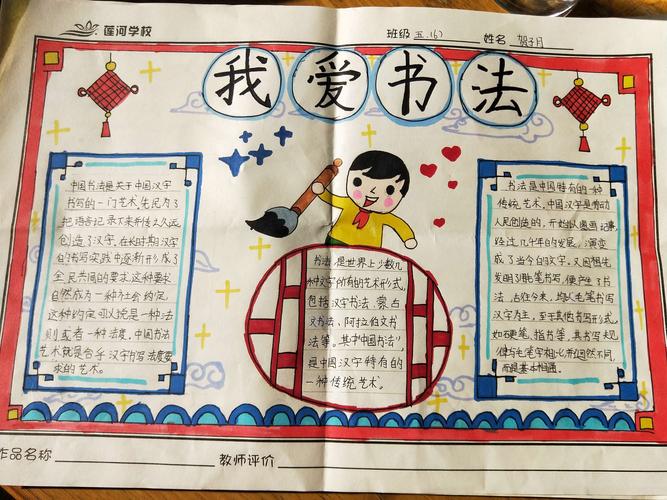 莲河学校
班级 五.(6) 姓名 贺子月
我爱书法
中国书法是关于中国汉字
书写的一门艺术,先民为了
把语言记录下来并传之久远,
创造了汉字,在长时期汉字
的书写实践中逐渐形成了
全民共同的要求,这种要求
自然成为一种社会约定,
这种约定可以说是一种法
则或者一种法度,中国书法
艺术就是合乎汉字书写法度要
求的艺术。
书法是世界上少数几
种文字所有的艺术形式,
包括汉字书法、蒙古
文书法、阿拉伯文书
法等。其中"中国书法",
是中国汉字特有的
一种传统艺术。
书法是中国特有的一种
传统艺术,中国汉字是劳动
人民创造的,开始以图画记事,
经过几千年的发展,演变
成了当今的文字,又因祖先
发明了用毛笔书写,便产生了书
法,古往今来,均以毛笔书写
汉字为主,至于其他书写形式,
如硬笔、指书等,其书写规
律与毛笔字相比并非迥然不同,
而是基本相通。
作品名称
教师评价